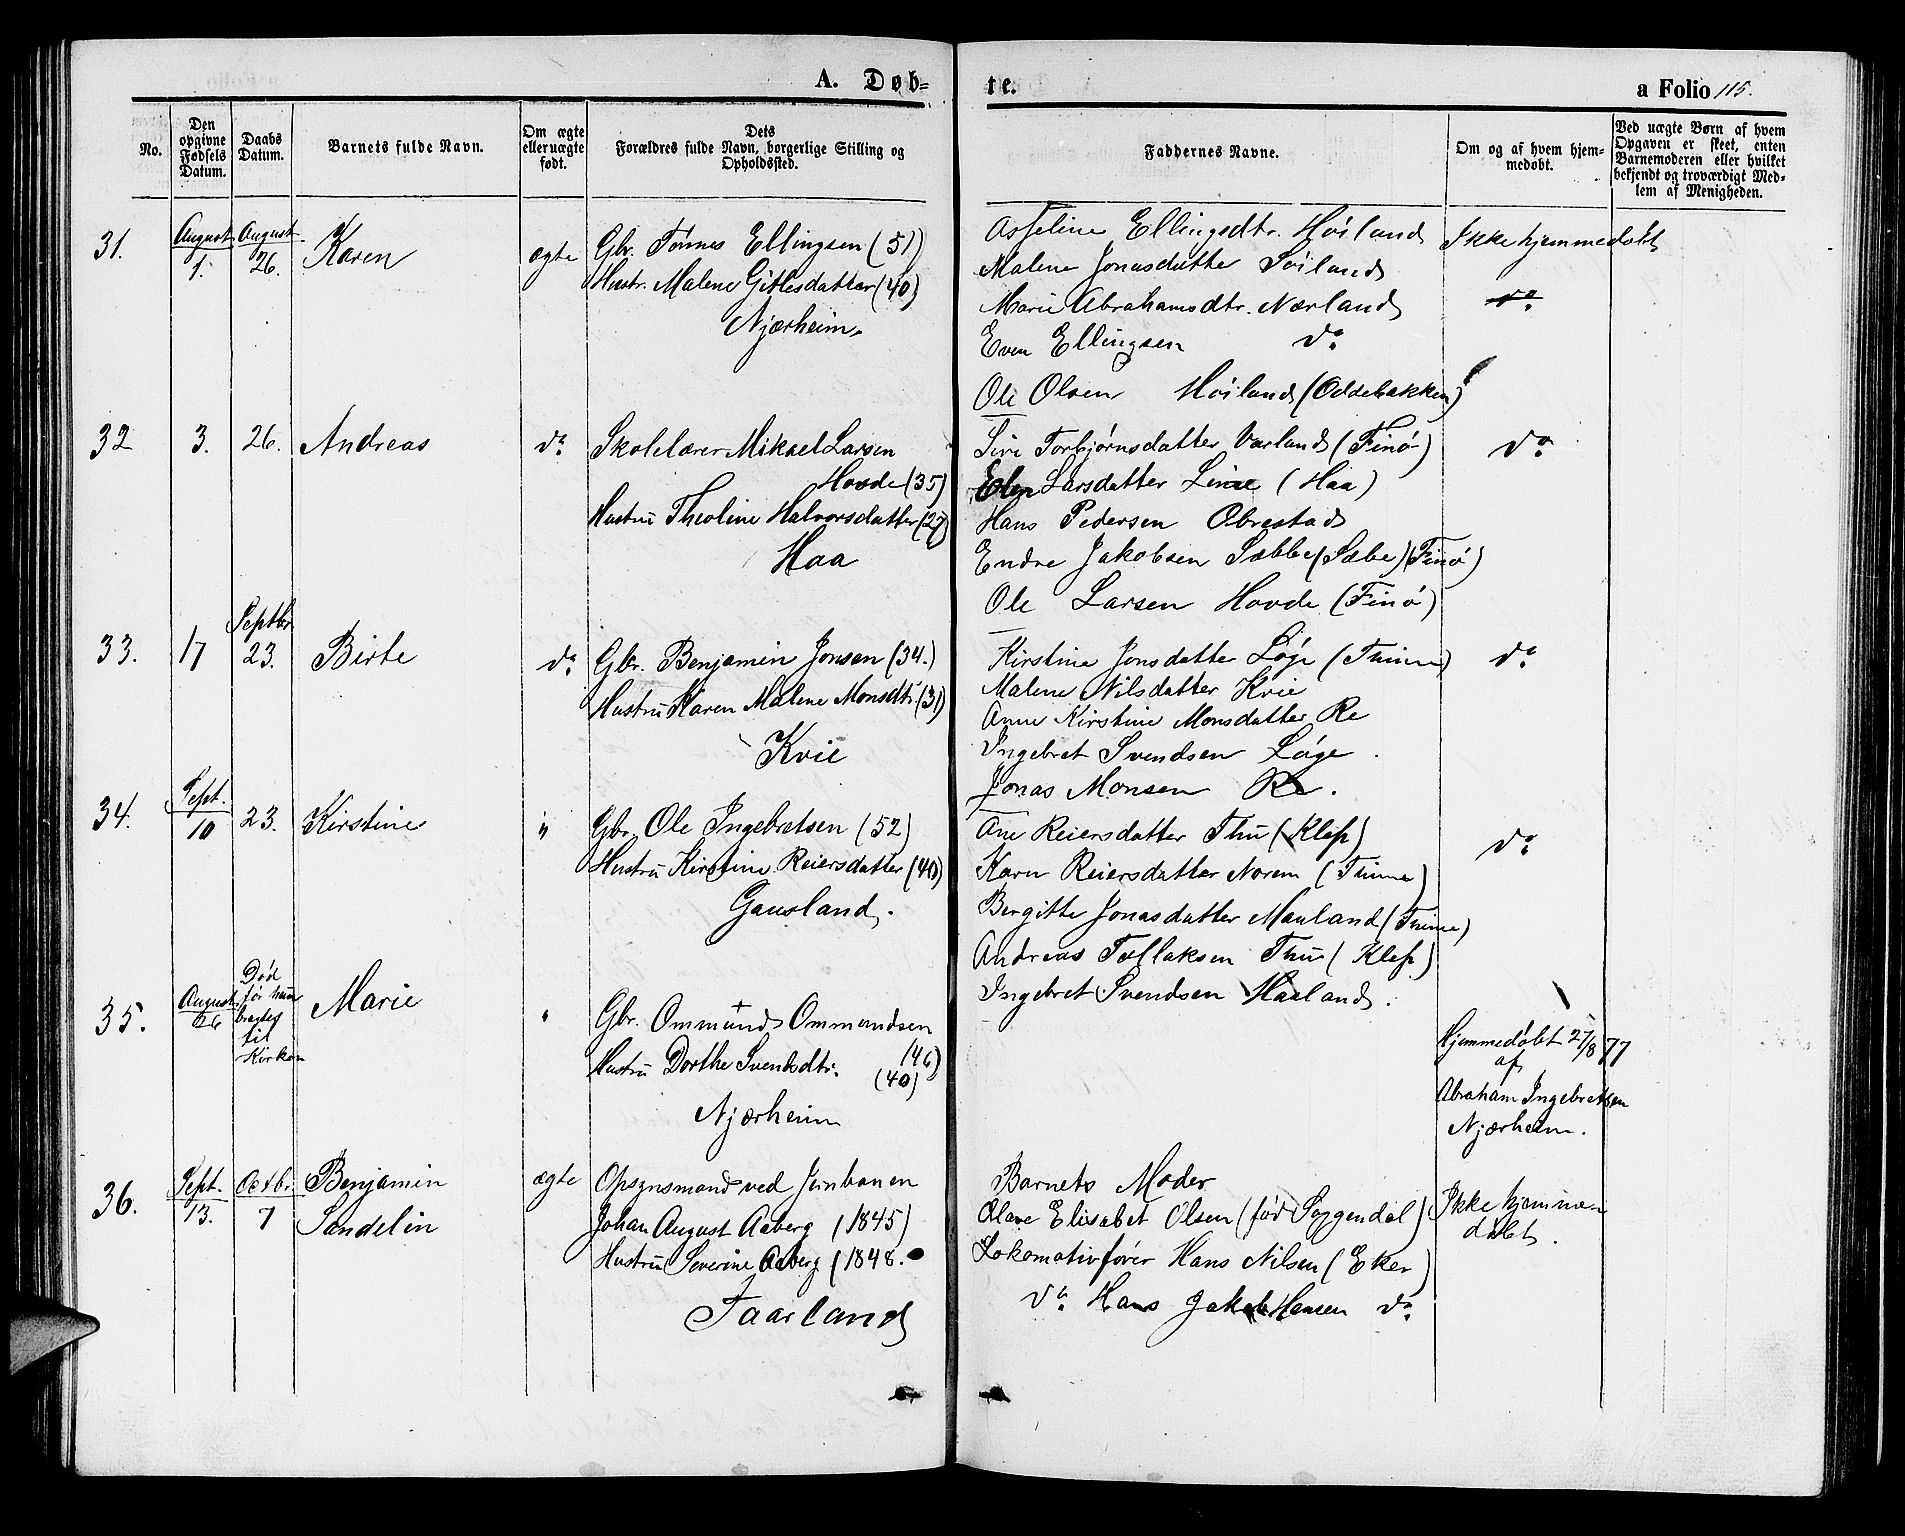 A. Døb-
No.
Den
opgivne
Fødsels
Datum.
Daabs
Datum.
Barnets fulde Navn.
Om ægte
eller uægte
født.
Dets
Forældres fulde Navn, borgerlige Stilling og
Opholdssted.
31.
August
1.
August
26.
Karen
ægte
Gbr. Tønnes Ellingsen (51)
Hustr. Malene Gitlesdatter (40)
Njærheim.
32
3.
26.
Andreas
do
Skolelærer Mikael Larsen
Hovde (35)
Hustru Theoline Halvorsdatter (27)
Haa
33.
17
Septbr
23.
Birte
do
Gbr. Benjamin Jonsen (34.)
Hustru Karen Malene Monsdtr. (31)
Kvie
34.
Sept.
10
23.
Kirstine
"
Gbr. Ole Ingebretsen (52)
Hustru Kirstine Reiersdatter (40)
Gausland.
35.
August
26
Død
før hun
bragtes
til
Kirken
Marie
"
Gbr. Ommund Ommundsen
(46)
Hustru Dorthe Svendsdtr. (40)
Njærheim
36.
Sept.
13.
Octbr.
7
Benjamin
Sandelin
ægte
Opsynsmand ved Jernbanen
Johan August Aaberg (1845)
Hustru Severine Aaberg (1848.
Taarland
te.
a Folio 115.
Faddernes Navne.
Om og af hvem hjem-
medøbt.
Ved uægte Børn af hvem
Opgaven er skeet, enten
Barnemoderen eller hvilket
bekjendt og troværdigt Med-
lem af Menigheden.
Asseline Ellingsdtr. Høiland
Ikke hjemmedøbt
Malene Jonasdatter Søiland
Marie Abrahamsdtr. Nærland
do
Even Ellingsen do
Ole Olsen Høiland (Oddebakken)
Siri Torbjørnsdatter Varland (Finø)
do
Elen Larsdatter Linie (Haa)
Hans Pedersen Obrestad
Endre Jakobsen Sæbbe (Sæbe) (Finø)
Ole Larsen Hovde (Finø)
Kirstine Jonsdatter Løge (Thime)
do
Malene Nilsdatter Kvie
Anne Kirstine Monsdatter Re
Ingebret Svendsen Løge.
Jonas Monsen Re.
Ane Reiersdatter Thu (Klep)
do
Karn Reiersdatter Norem (Thime)
Bergitte Jonasdatter Mauland (Thime)
Andreas Tollaksen Thu (Klep)
Ingebret Svendsen Haaland.
Hjemmedøbt 27/8 77
af
Abraham Ingebretsen
Njærheim.
Barnets Moder
Olave Elisabet Olsen (fød Soggendal)
Ikke hjemme-
døbt.
Lokomotivfører Hans Nilsen (Eker)
do Hans Jakob Hansen do